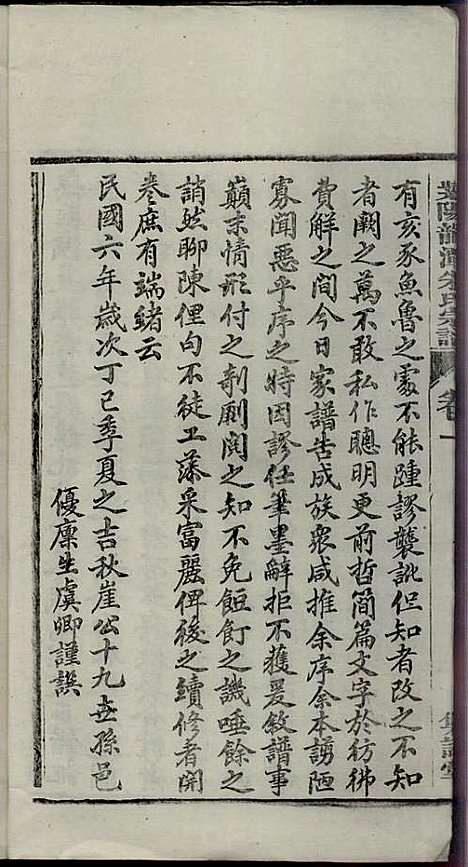 有亥豕魚魯之處不能踵謬襲訛但知者改之不知
者闕之萬不敢私作聰明更前哲簡篇文字於彷彿
費解之間今日家譜告成族衆咸推余序余本謭陋
寡聞惡乎序之特因謬任筆墨辭拒不獲爰敘譜事
巔末情形付之剞劂閱之知不免飣餖之譏唾餘之
誚然聊陳俚句不徒工藻采富麗俾後之續修者開
卷庶有端緒云
民國六年歲次丁巳季夏之吉秋崖公十九世孫邑
優廩生虞卿謹譔
龍潭朱氏宗譜
卷一